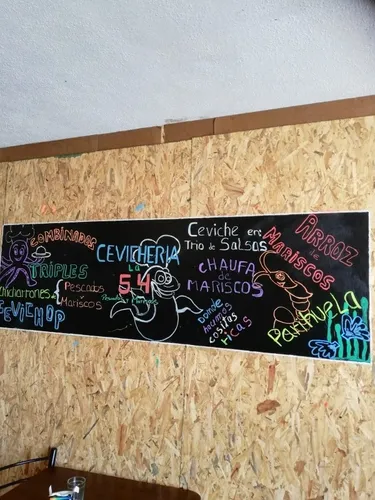 COMBINADOS
TRIPLES
Chicharrones
Pescados
Mariscos
CEVICHOP
CEVICHERIA
LA
54
Ceviche en
Trio de Salsas
CHAUFA
de
MARISCOS
DONDE
cositas
RICAS
ARROZ
de
MARISCOS
PARIHUELA